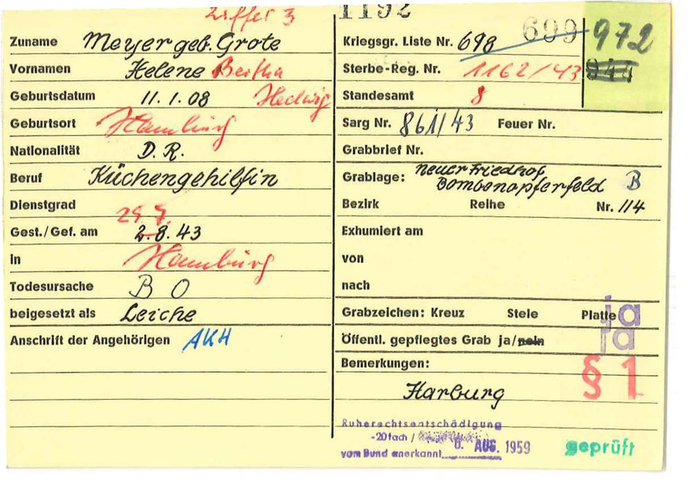 Ziffer 3
1192
Zuname Meyer geb. Grote
Vornamen Helene Bertha
Geburtsdatum 11.1.08 Hedwig
Geburtsort Hamburg
Nationalität D.R.
Beruf Küchengehilfin
Dienstgrad
29.7.
Gest./Gef. am 2.8.43
in Hamburg
Todesursache B O
beigesetzt als Leiche
Anschrift der Angehörigen AKH
Kriegsgr. Liste Nr. 698 699 972
Sterbe-Reg. Nr. 1162/43 944
Standesamt 8
Sarg Nr. 861/43 Feuer Nr.
Grabbrief Nr.
Grablage: Neuer Friedhof
Bombenopferfeld B
Bezirk Reihe Nr. 114
Exhumiert am
von
nach
Grabzeichen: Kreuz Stele Platte ja
Öffentl. gepflegtes Grab ja/nein ja
Bemerkungen: § 1
Harburg
Ruherechtsentschädigung
-20fach /
vom Bund anerkannt 6. AUG. 1959
geprüft